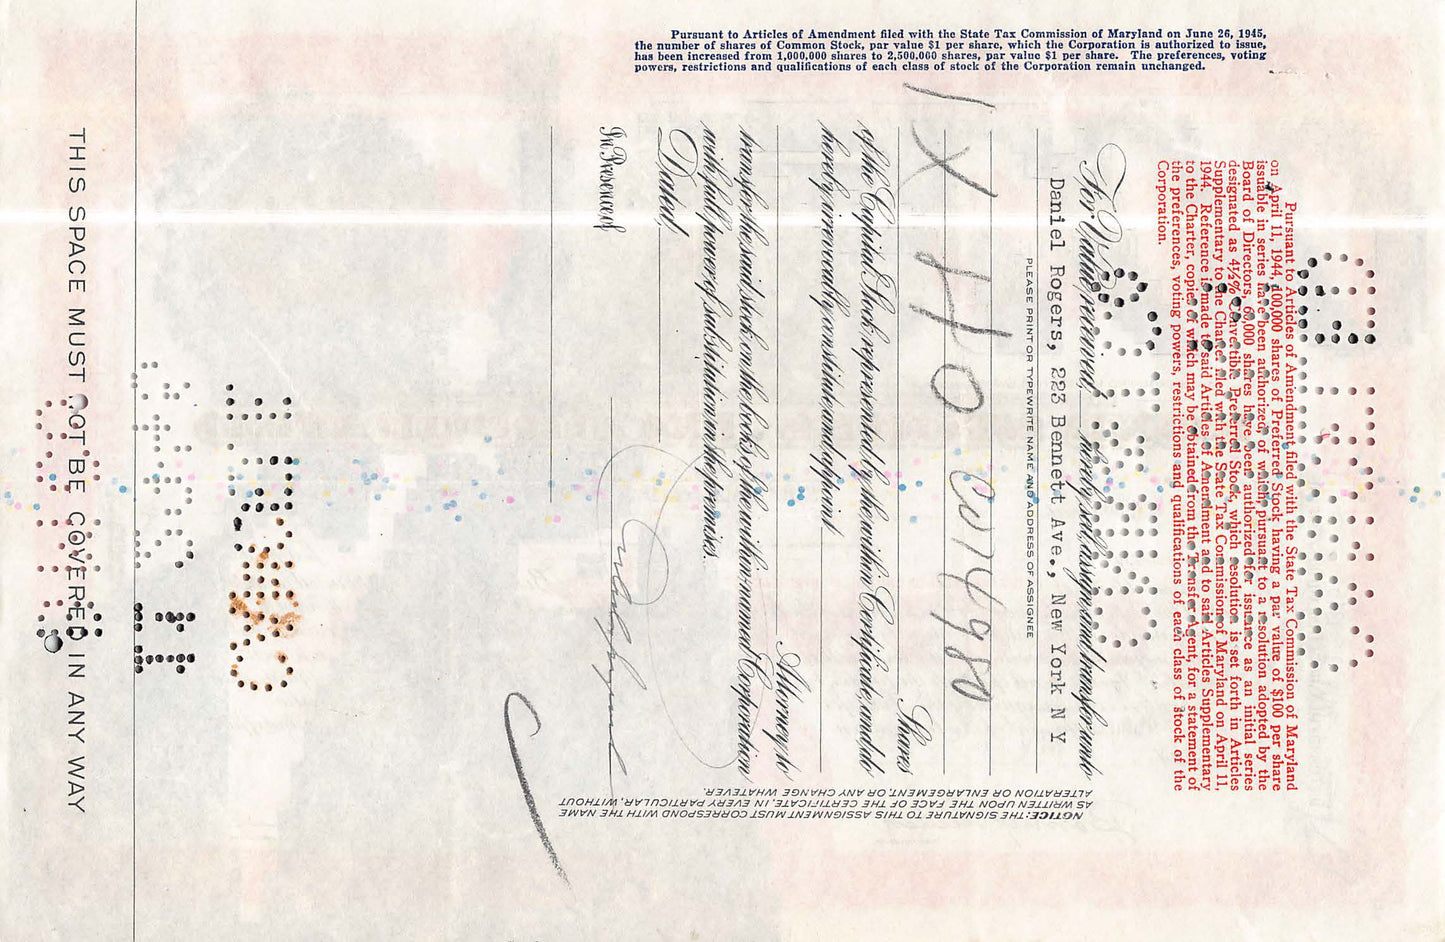 Pursuant to Articles of Amendment filed with the State Tax Commission of Maryland on June 26, 1945,
the number of shares of Common Stock, par value $1 per share, which the Corporation is authorized to issue,
has been increased from 1,000,000 shares to 2,500,000 shares, par value $1 per share. The preferences, voting
powers, restrictions and qualifications of each class of stock of the Corporation remain unchanged.
Pursuant to Articles of Amendment filed with the State Tax Commission of Maryland
on April 11, 1944, 100,000 shares of Preferred Stock having a par value of $100 per share
issuable in series have been authorized, of which pursuant to a resolution adopted by the
Board of Directors, shares have been authorized for issuance as an initial series
designated as 4½% Convertible Preferred Stock, which resolution is set forth in Articles
Supplementary to the Charter filed with the State Tax Commission of Maryland on April 11,
1944. Reference is made to said Articles of Amendment and to said Articles Supplementary
to the Charter, copies of which may be obtained from the Transfer Agent, for a statement of
the preferences, voting powers, restrictions and qualifications of each class of stock of the
Corporation.
For Value received, hereby sell, assign and transfer unto
Daniel Rogers, 223 Bennett Ave., New York N Y
PLEASE PRINT OR TYPEWRITE NAME AND ADDRESS OF ASSIGNEE
Shares
of the Capital Stock represented by the within Certificate, and do
hereby irrevocably constitute and appoint
Attorney to
transfer the said stock on the books of the within-named Corporation
with full power of substitution in the premises.
Dated,
In Presence of
NOTICE: THE SIGNATURE TO THIS ASSIGNMENT MUST CORRESPOND WITH THE NAME
AS WRITTEN UPON THE FACE OF THE CERTIFICATE, IN EVERY PARTICULAR, WITHOUT
ALTERATION OR ENLARGEMENT, OR ANY CHANGE WHATEVER.
THIS SPACE MUST NOT BE COVERED IN ANY WAY